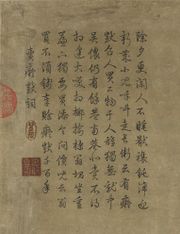 除夕更闌人不睡厭禳鈍滯迎
新歲小兒呼叫走長街云有癡
獃召人買二物於人誰獨無就中
吳儂仍有餘巷南巷北賣不得
相逢大笑相揶揄櫟翁塊坐重
簾下獨要買添令問價兒云翁
買不須錢奉賒癡獃千百年
賣癡獃詞